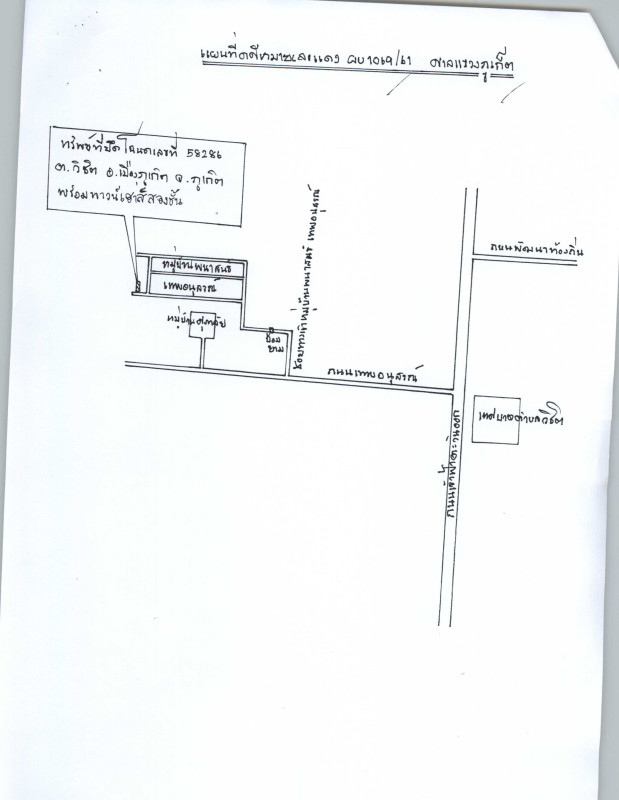 แผนที่คดีหมายเลขแดง ผบ 1069/61 ศาลแขวงภูเก็ต
ทรัพย์ที่ยึดโฉนดเลขที่ 58286
ต.วิชิต อ.เมืองภูเก็ต จ.ภูเก็ต
พร้อมทาวน์เฮาส์สองชั้น
ถนนพัฒนาท้องถิ่น
หมู่บ้านพนาสนธิ์
เทพอนุสรณ์
หมู่บ้าน
ป้อม
ยาม
ซอยทางเข้าหมู่บ้านพนาสนธิ์ เทพอนุสรณ์
ถนนเทพอนุสรณ์
เทศบาลตำบลวิชิต
ถนนเจ้าฟ้าตะวันออก